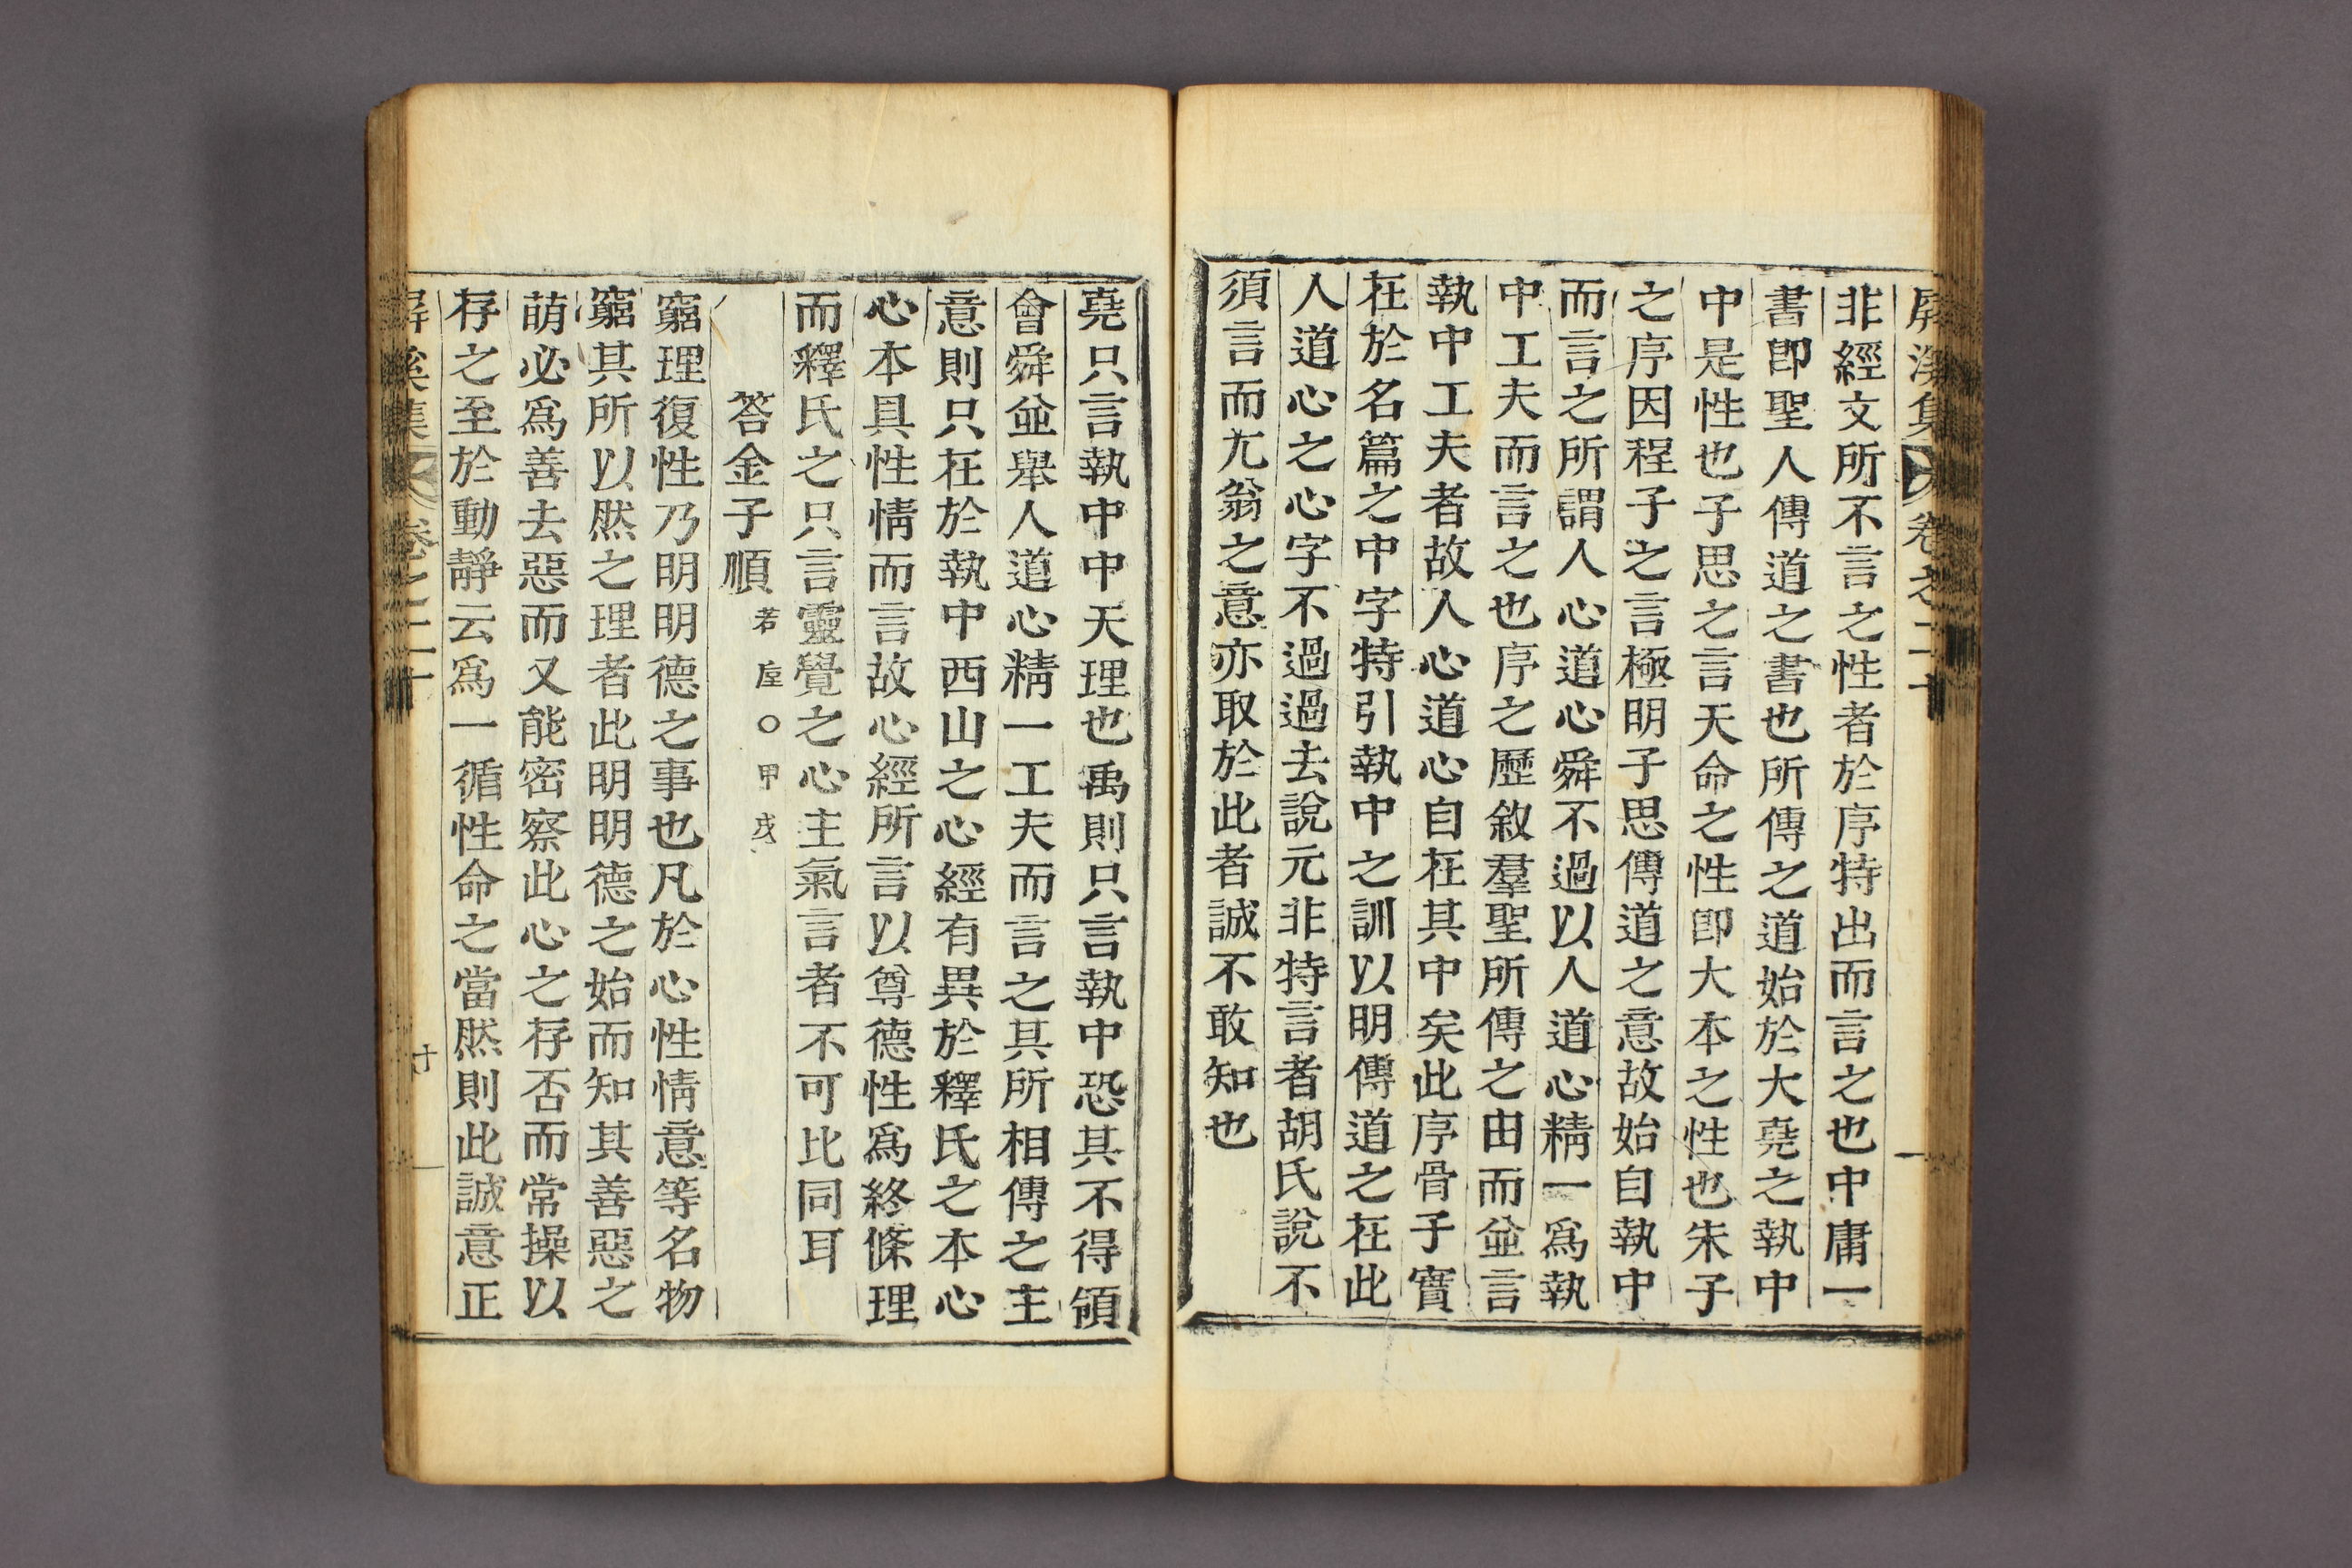 屛溪集 卷之二十
非經文所不言之性者於序特出而言之也中庸一
書卽聖人傳道之書也所傳之道始於大堯之執中
中是性也子思之言天命之性卽大本之性也朱子
之序因程子之言極明子思傳道之意故始自執中
而言之所謂人心道心舜不過以人道心精一爲執
中工夫而言之也序之歷敘羣聖所傳之由而並言
執中工夫者故人心道心自在其中矣此序骨子實
在於名篇之中字特引執中之訓以明傳道之在此
人道心之心字不過過去說元非特言者胡氏說不
須言而尤翁之意亦取於此者誠不敢知也
堯只言執中中天理也禹則只言執中恐其不得領
會舜並舉人道心精一工夫而言之其所相傳之主
意則只在於執中西山之心經有異於釋氏之本心
心本具性情而言故心經所言以尊德性爲終條理
而釋氏之只言靈覺之心主氣言者不可比同耳
答金子順 若垕○甲戌
窮理復性乃明明德之事也凡於心性情意等名物
窮其所以然之理者此明明德之始而知其善惡之
萌必爲善去惡而又能密察此心之存否而常操以
存之至於動靜云爲一循性命之當然則此誠意正
屛溪集 卷之二十 十